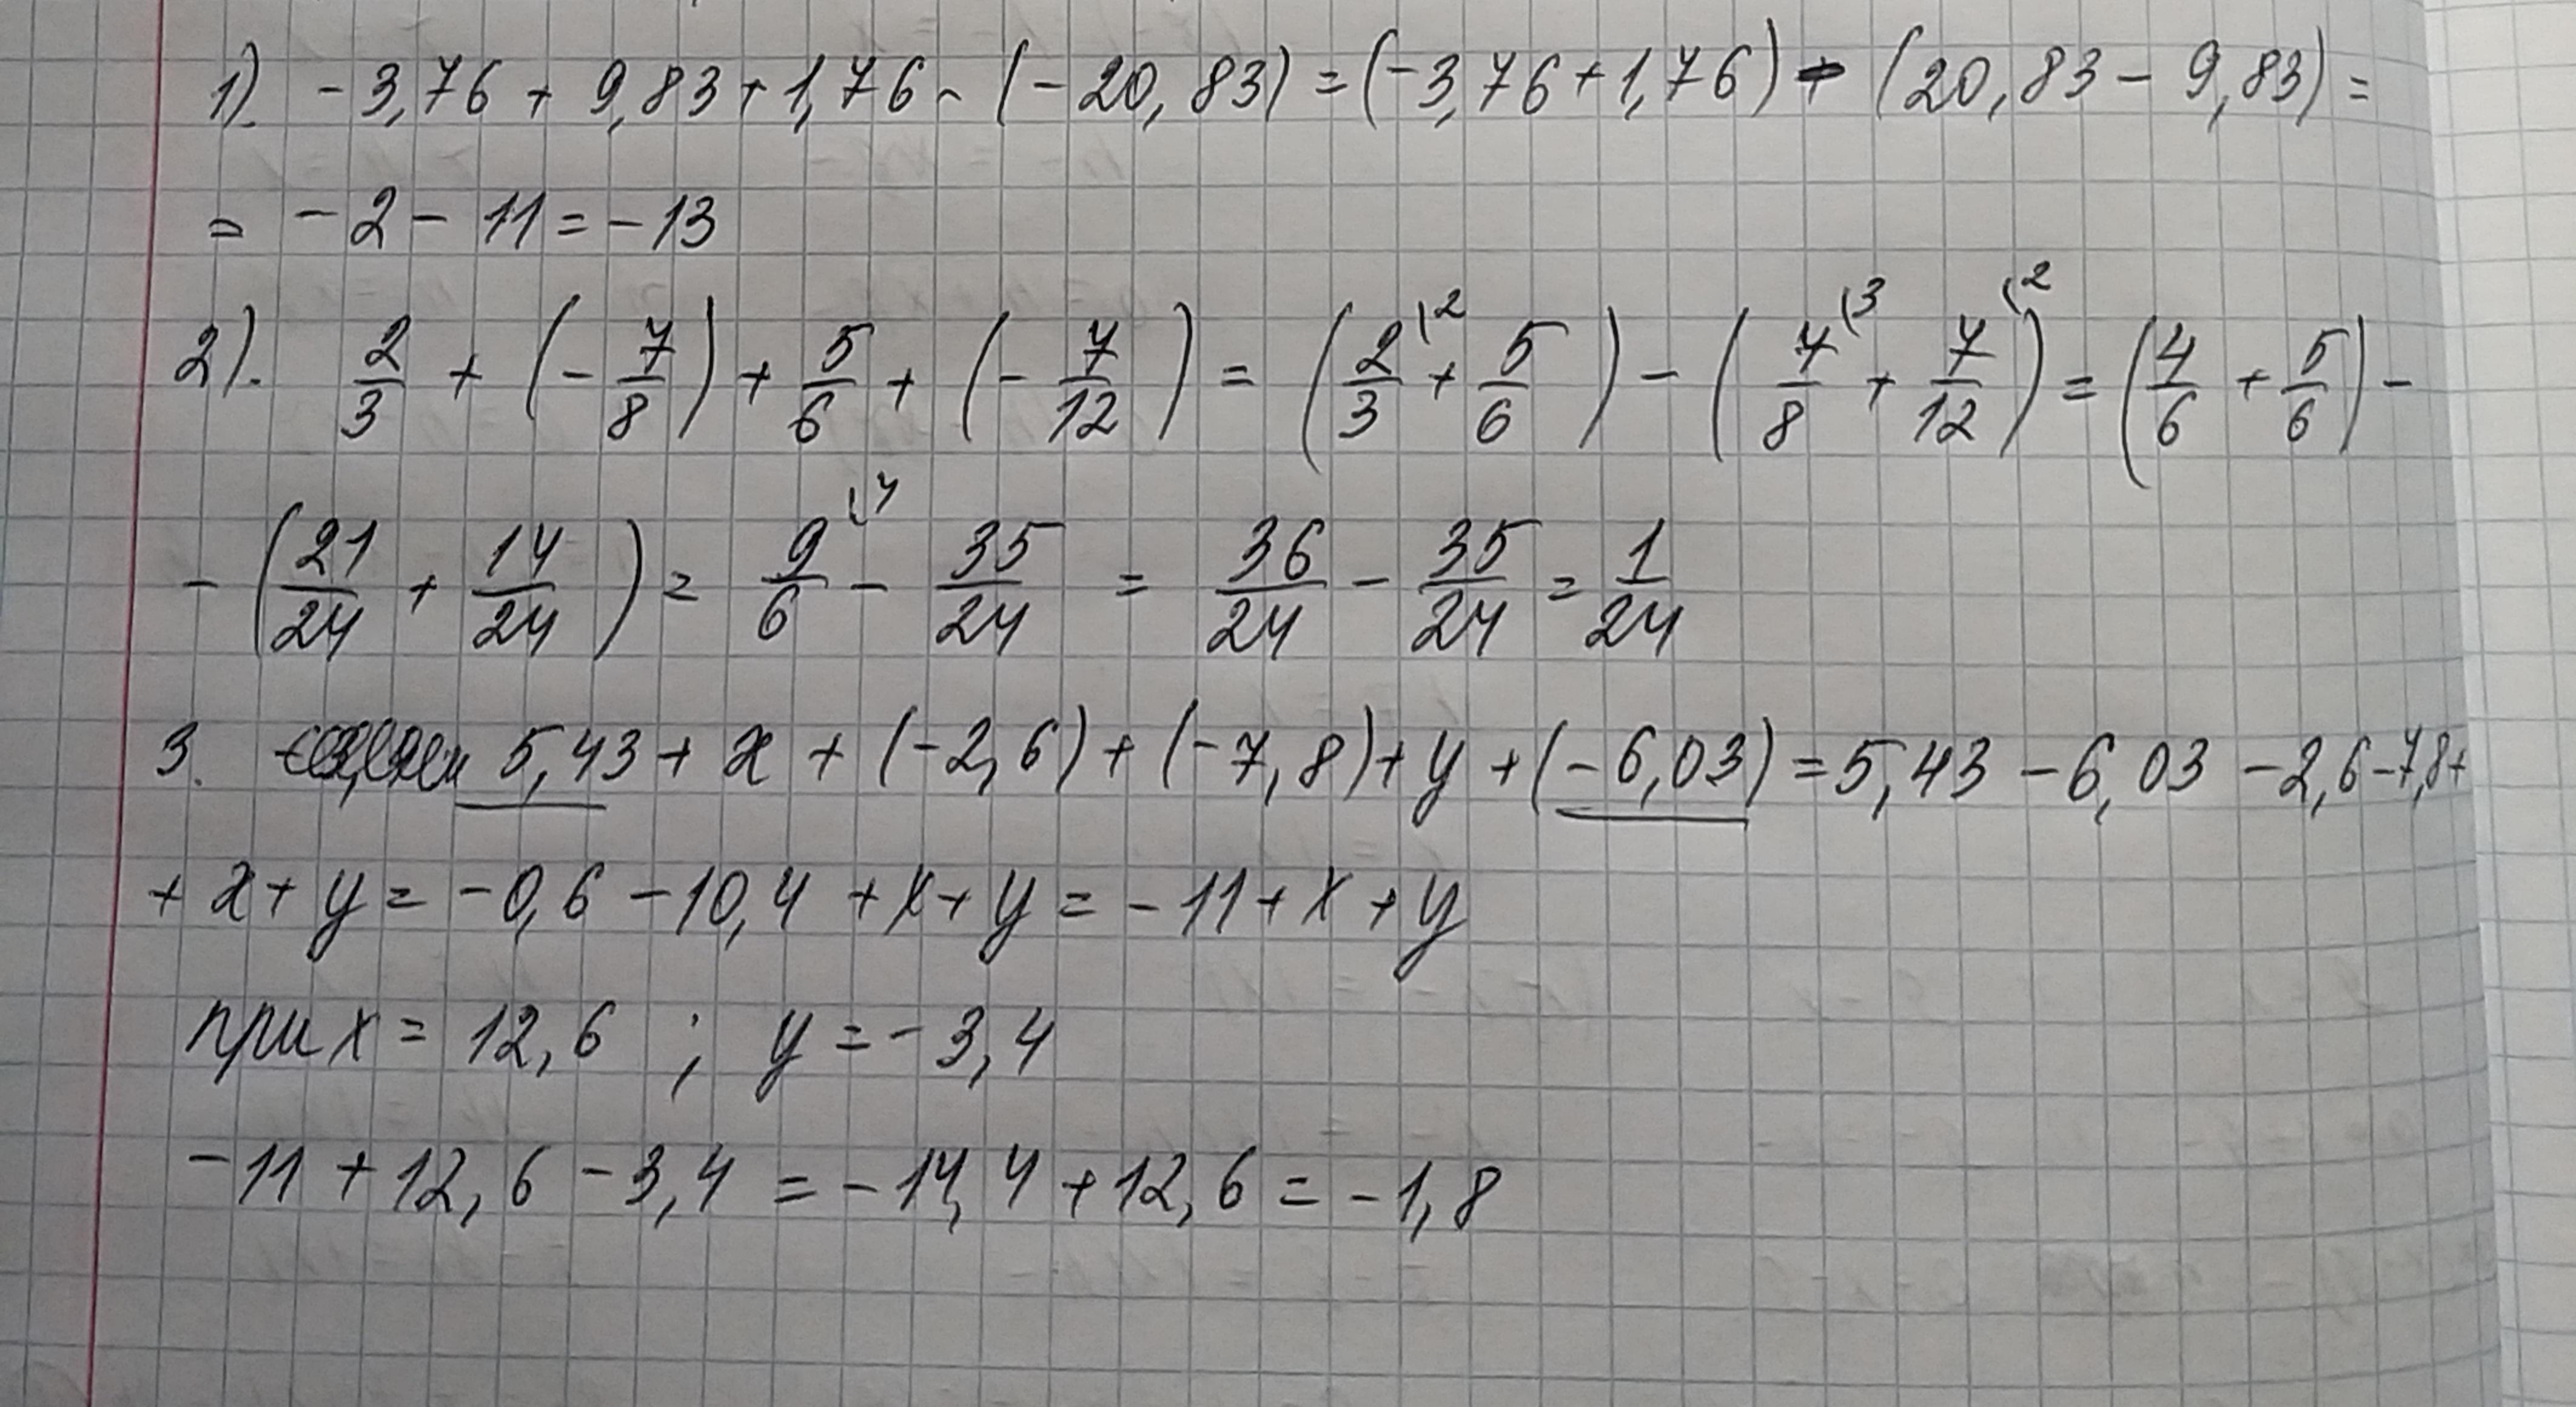 1). -3,76 + 9,83 + 1,76 - (-20,83) = (-3,76 + 1,76) - (20,83 - 9,83) =
= -2 - 11 = -13
2). 2/3 + (-7/8) + 5/6 + (-7/12) = (2/3 \2 + 5/6) - (7/8 \3 + 7/12 \2) = (4/6 + 5/6) -
- (21/24 + 14/24) = 9/6 \4 - 35/24 = 36/24 - 35/24 = 1/24
3. 5,43 + x + (-2,6) + (-7,8) + y + (-6,03) = 5,43 - 6,03 - 2,6 - 7,8 +
+ x + y = -0,6 - 10,4 + x + y = -11 + x + y
при x = 12,6 ; y = -3,4
-11 + 12,6 - 3,4 = -14,4 + 12,6 = -1,8